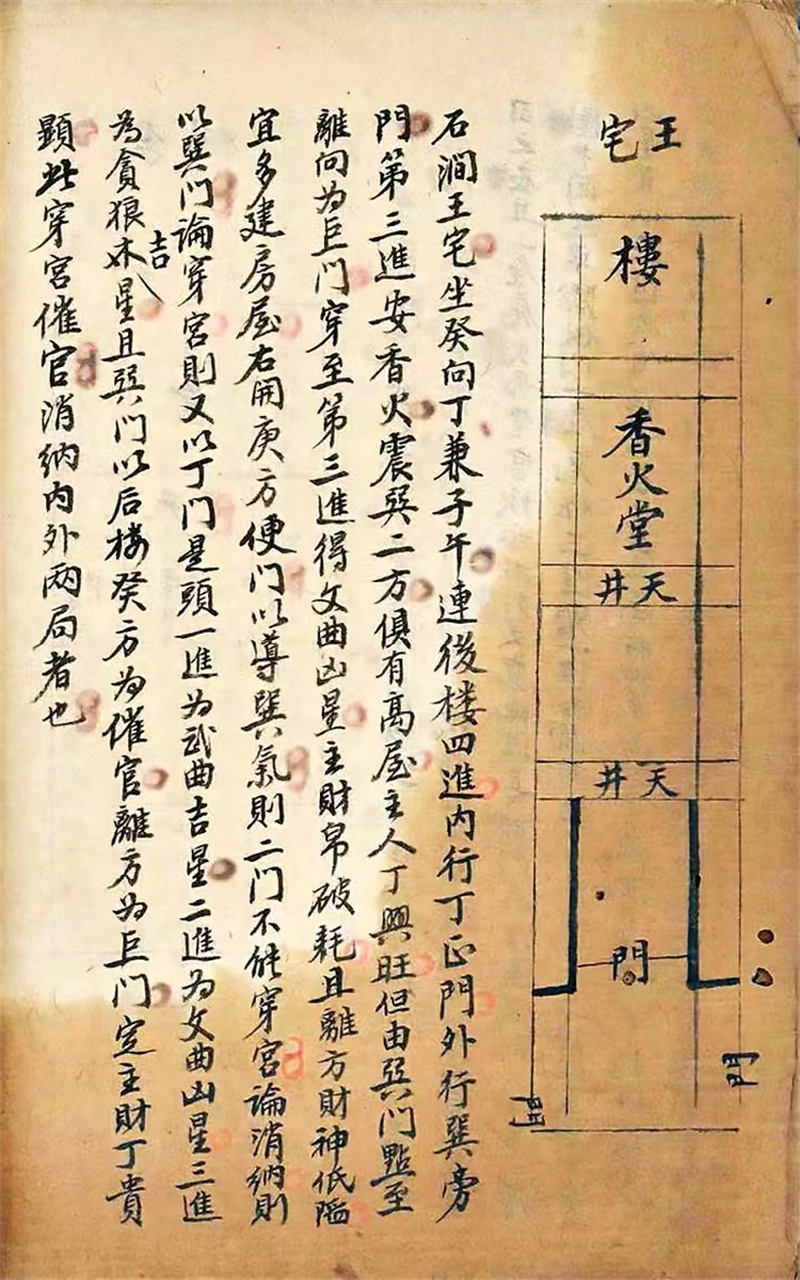 王宅
樓
香火堂
天井
天井
門
門
門
石澗王宅坐癸向丁兼子午連後楼四進内行丁正門外行巽旁
門第三進安香火震巽二方俱有高屋主人丁興旺但由巽門點至
離向为巨门穿至第三進得文曲凶星主財帛破耗且離方財神低陷
宜多建房屋右開庚方便门以導巽氣則二门不能穿宫論消納則
以巽门論穿宮則又以丁门是頭一進为武曲吉星二進为文曲凶星三進
为貪狼木吉星且巽门以后楼癸方为催官離方为巨门定主財丁貴
顕此穿宫催官消納内外两局者也